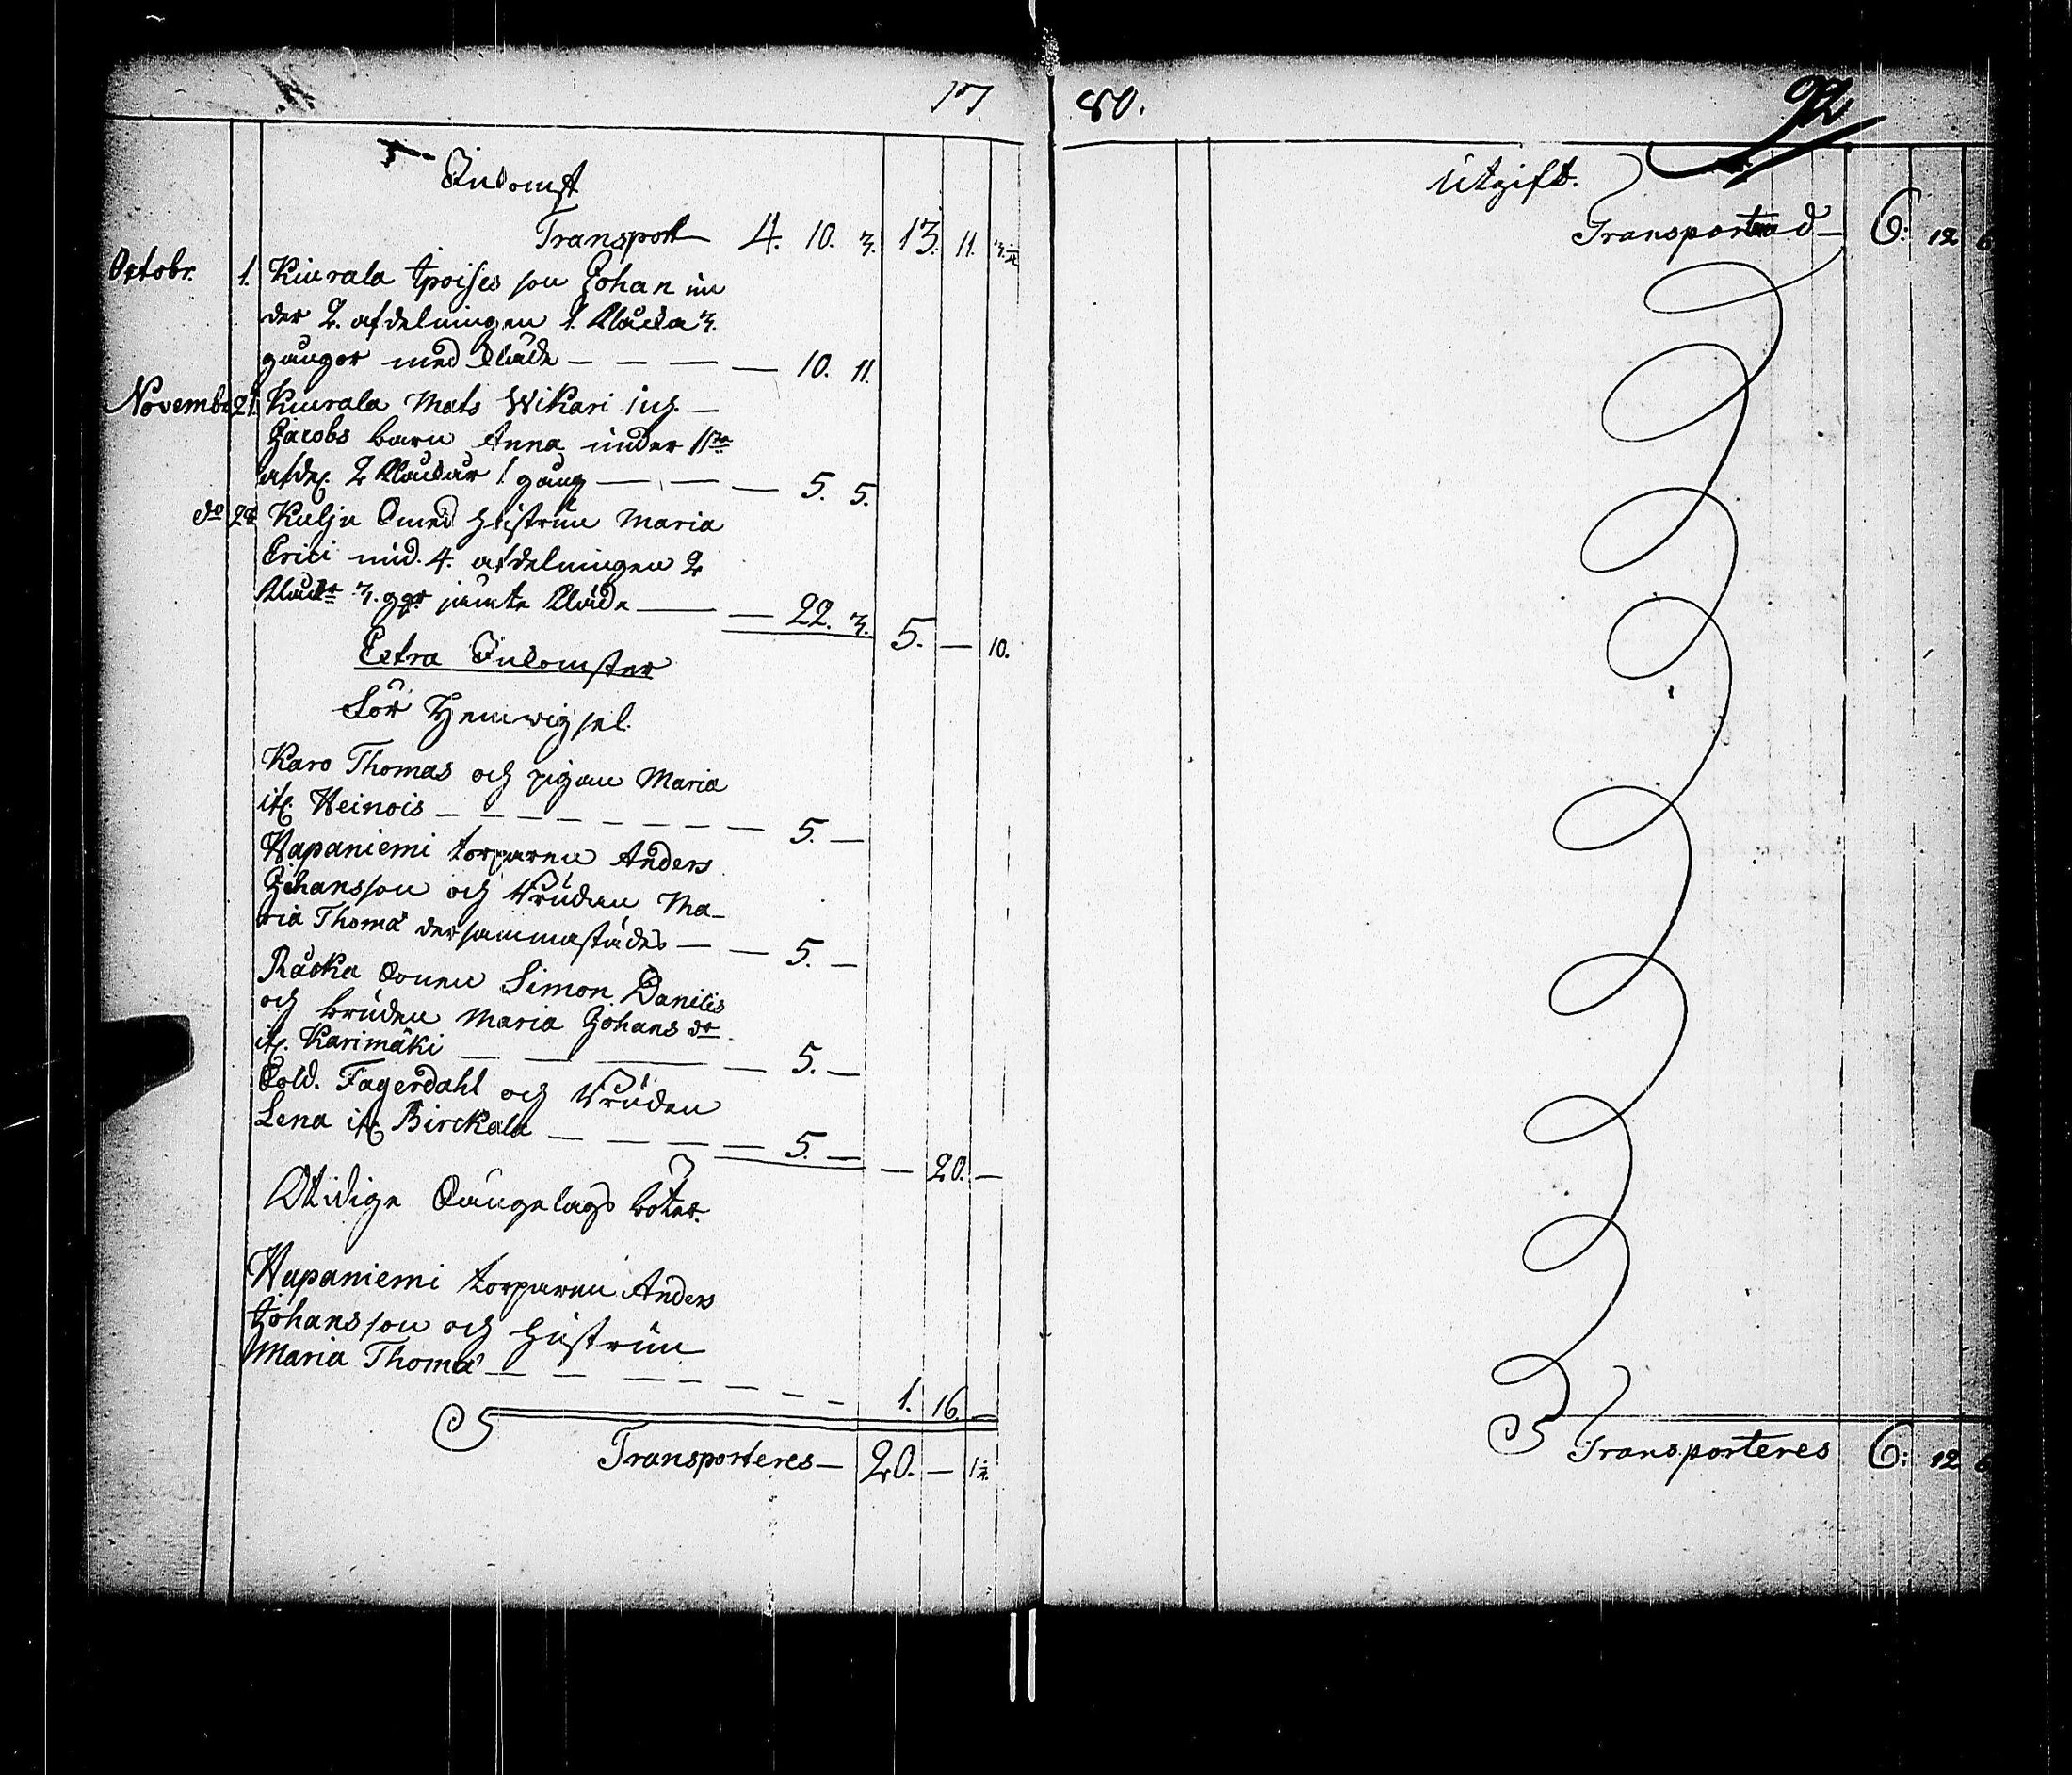 17
Inkomst
Transport 4. 10. 3. 13. 11. 3 1/2
Octobr. 1. Kiurala Spoises son Johan un
der 2. afdelningen 1. klåcka 3.
gångor med kläde — — — — 10. 11.
Novemb. 21. Kiurala Mats Wikari inh. —
Jacobs barn Anna under 11te
afdel. 2 klåckår 1. gång — — — 5. 5.
do 28 Kulju Smed hustrun Maria
Erici und. 4. afdelningen 2
klåckr 3. ggr jämte kläde — — 22. 3. 5. — 10.
Extra Inkomster
För Hemvigsel.
Karo Thomas och pigan Maria
ifr. Heinois — — — — — — — 5. —
Hapaniemi torparen Anders
Johansson och Bruden Ma-
ria Thoma dersammastädes — — 5. —
Räcka sonen Simon Daniels
och bruden Maria Johans dr
ifr. Karimäki — — — — 5. —
Sold. Fagerdahl och Bruden
Lena ifr. Birckala — — — — 5. — — 20. —
Otidige Sängelags böter.
Hapaniemi torparen Anders
Johansson och hustrun
Maria Thoma — — — — — — — 1. 16. —
Transporteres — 20. — 1 1/2.
80. 92
Utgift.
Transporterad — 6: 12 6
Transporteres 6: 12 6